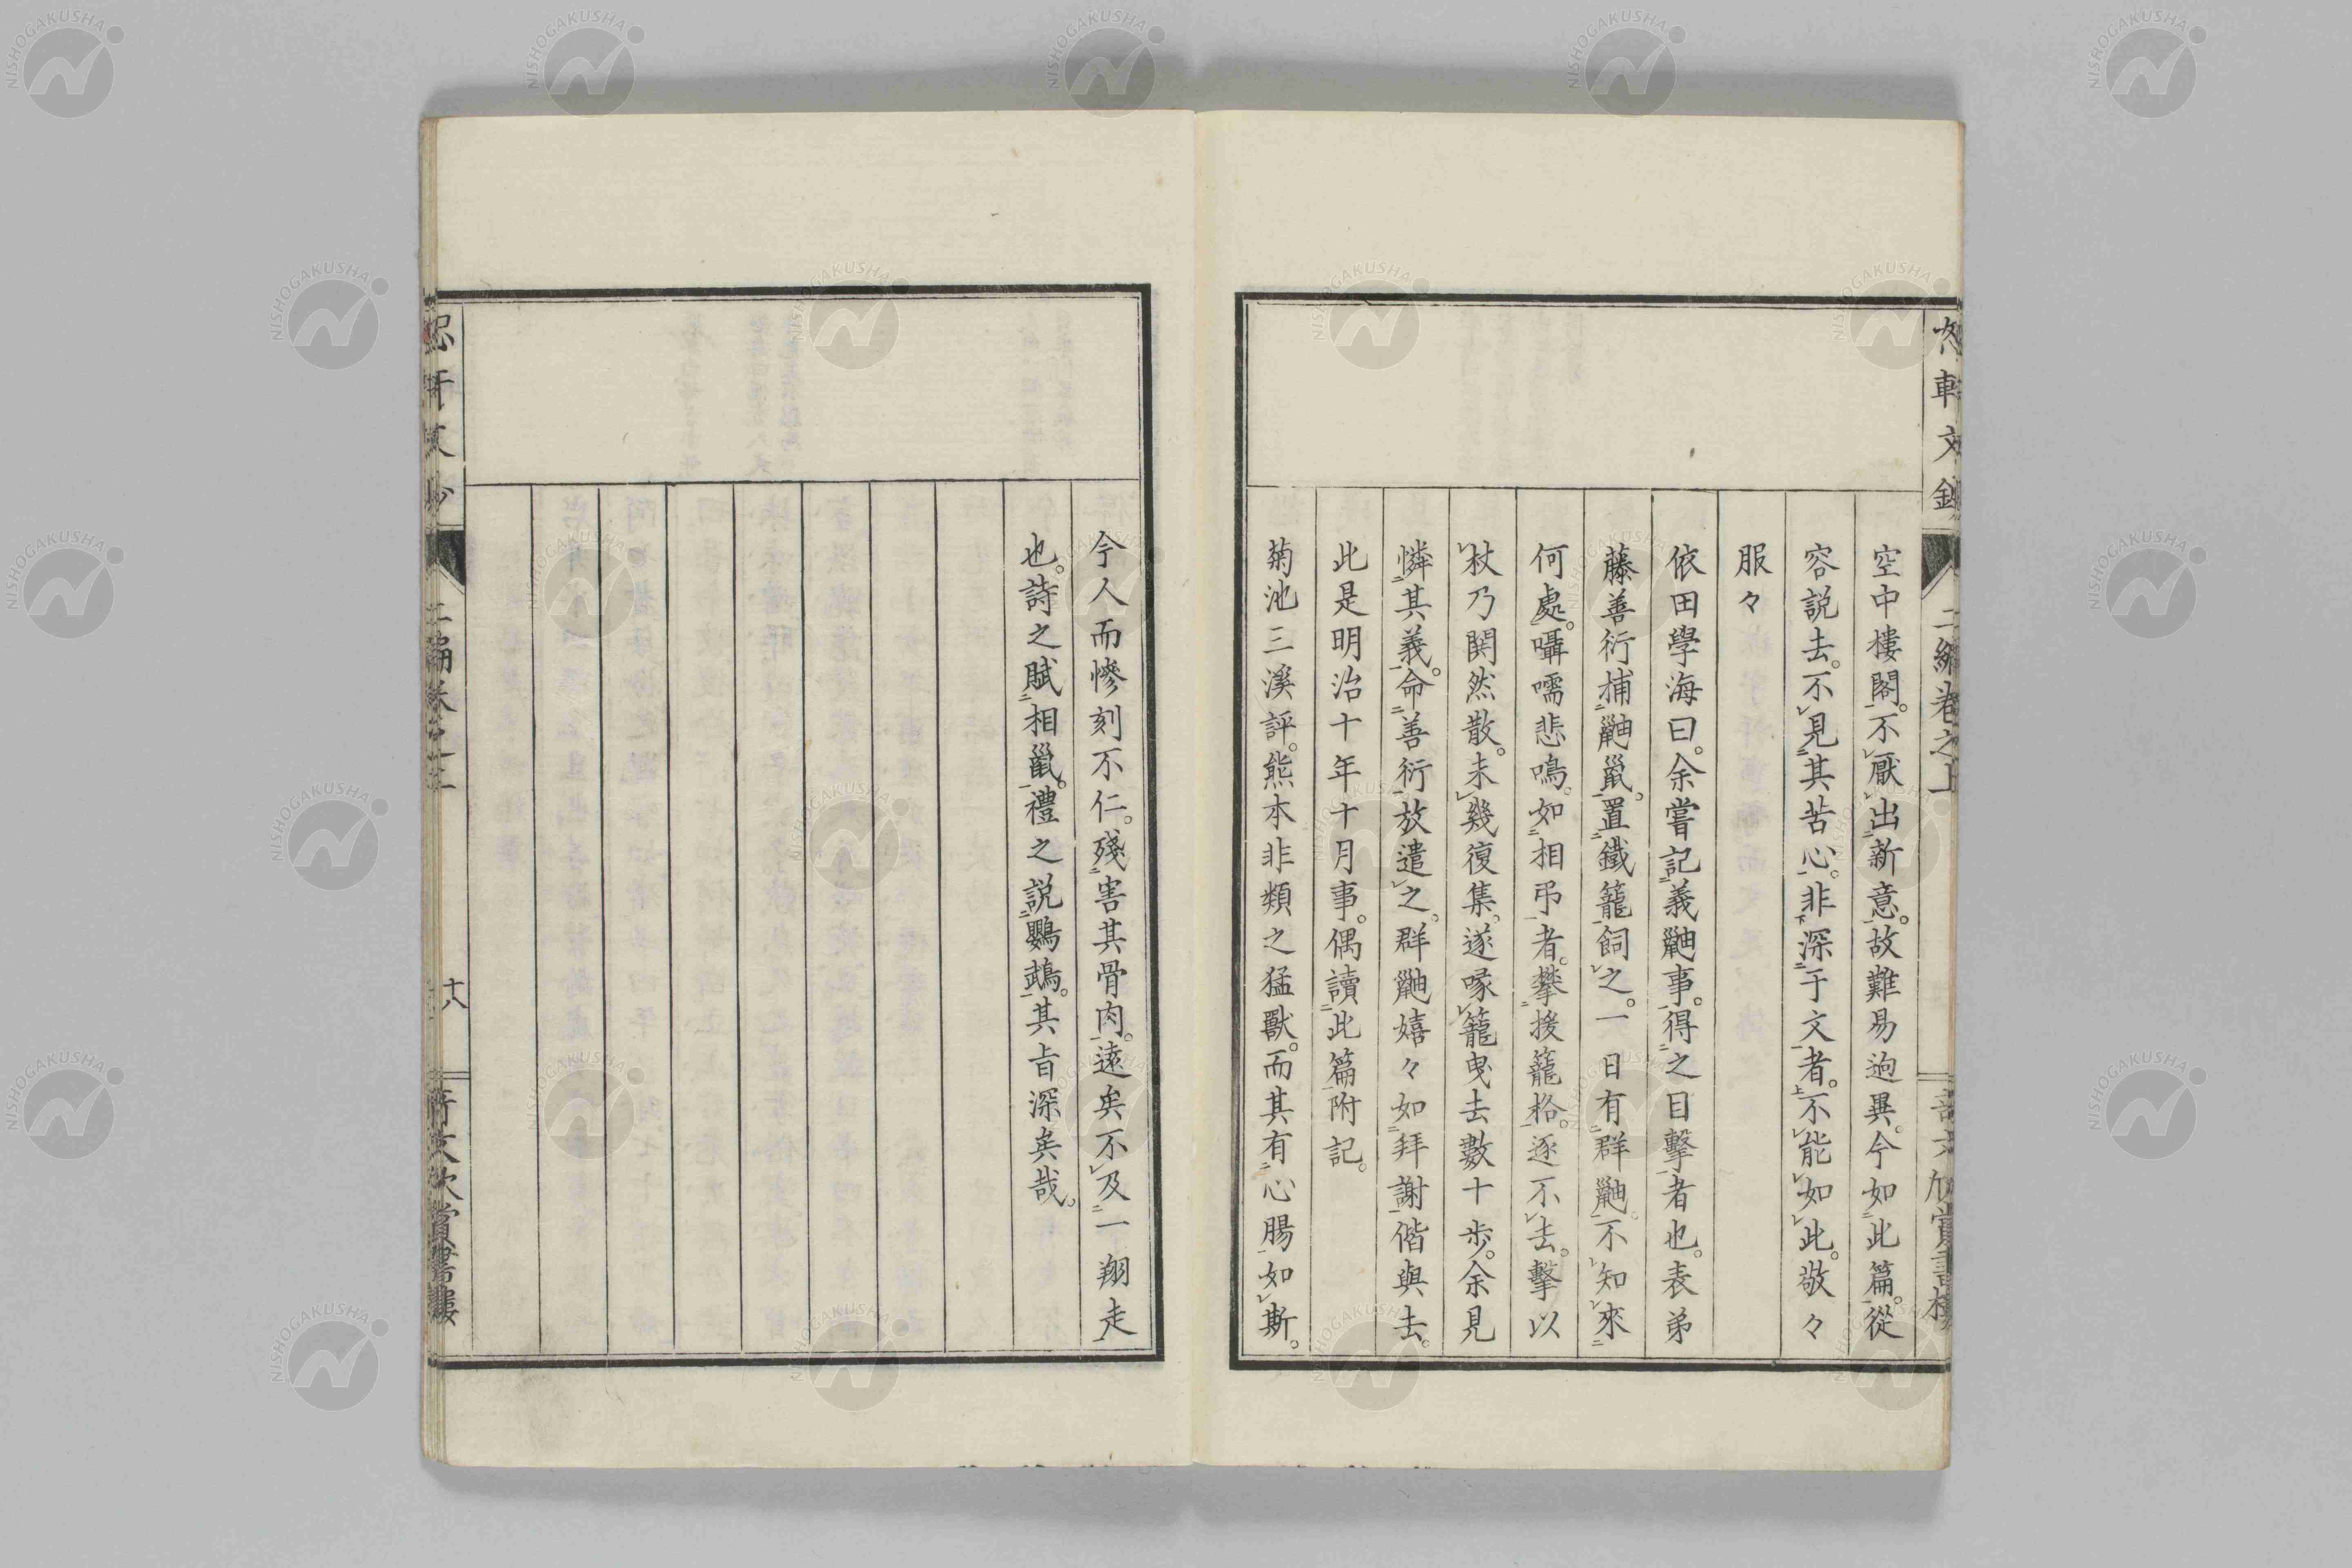 空中樓閣。不厭出新意。故難易逈異。今如此篇。從
容説去。不見其苦心。非深于文者。不能如此。敬々
服々
依田學海曰。余嘗記義鼬事。得之目擊者也。表弟
藤善衍捕鼬鼠。置鐵籠飼之。一日有群鼬。不知來
何處。囁嚅悲鳴。如相弔者。攀援籠格。逐不去。擊以
杖乃鬨然散。未幾復集。遂啄籠曳去數十歩。余見
憐其義。命善衍放遣之。群鼬嬉々如拜謝偕與去。
此是明治十年十月事。偶讀此篇附記。
菊池三溪評。熊本非類之猛獸。而其有心腸如斯。
今人而慘刻不仁。殘害其骨肉。遠矣不及一翔走
也。詩之賦相鼠。禮之説鸚鵡。其旨深矣哉。
二編卷之上
十八
NISHOGAKUSHA